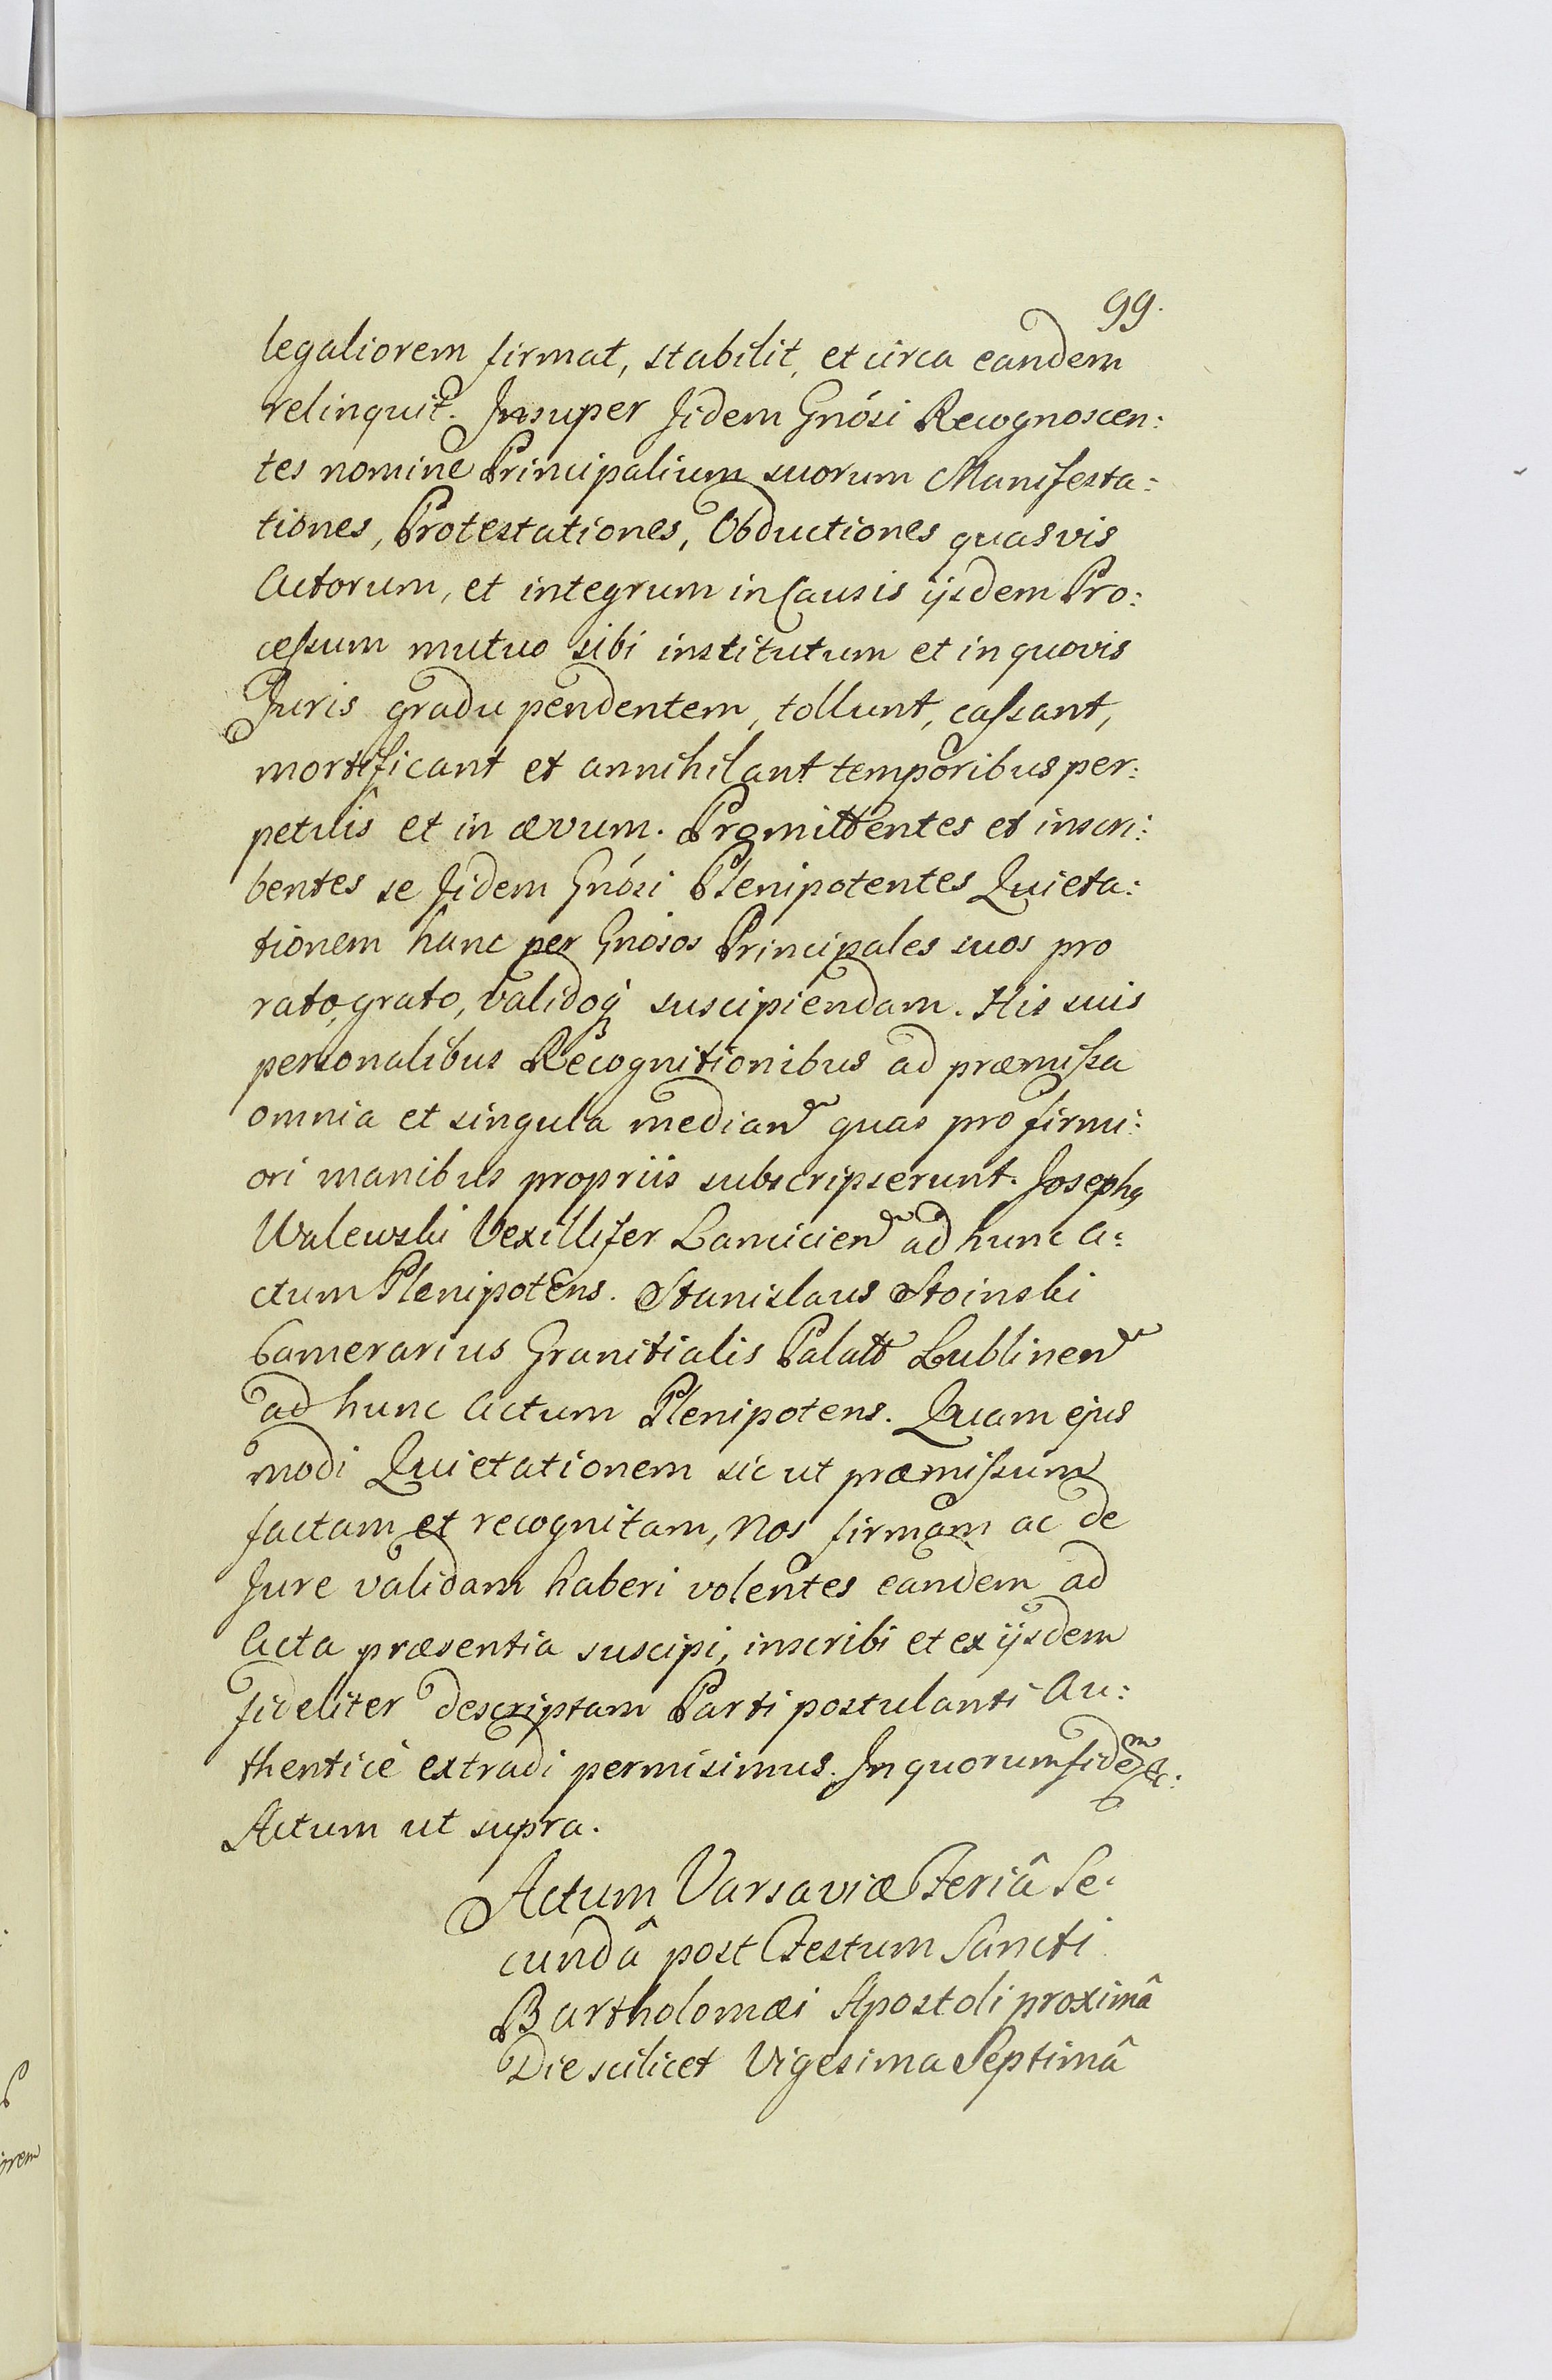 99.
legaliorem firmat, stabilit, et circa eandem
relinquit. Insuper Iidem Gnósi Recognoscen:
tes nomine Principalium suorum Manifesta:
tiones, Protestationes, Obductiones quasvis
Actorum, et integrum in Causis ijsdem Pro:
cessum mutuo sibi institutum et in quovis
Juris gradu pendentem, tollunt, cassant,
mortificant et annihilant temporibus per:
petuîs et in ævum. Promittentes et inscri:
bentes se Iidem Gnósi Plenipotentes Quieta:
tionem hanc per Gnósos Principales suos pro
rato, grato, validoq suscipiendam. His suis
personalibus Recognitionibus ad præmissa
omnia et singula median quas pro firmi:
ori manibus propriis subscripserunt. Josephq
Walewski Vexillifer Lanicien ad hunc A:
ctum Plenipotens. Stanislaus Stoinski
Camerarius Granitialis Palatt Lublinen
ad hunc Actum Plenipotens. Quam ejus
modi Quietationem sic ut præmissum
factam et recognitam, Nos firmam ac de
Jure validam haberi volentes eandem ad
Acta præsentia suscipi, inscribi et ex ijsdem
fideliter descriptam Parti postulanti Au:
thenticè extradi permisimus. In quorum fidem &c:
Actum ut supra.
Actum Varsaviæ Feriâ Se:
cundâ post Festum Sancti
Bartholomæi Apostoli proximâ
Die scilicet Vigesima Septimâ